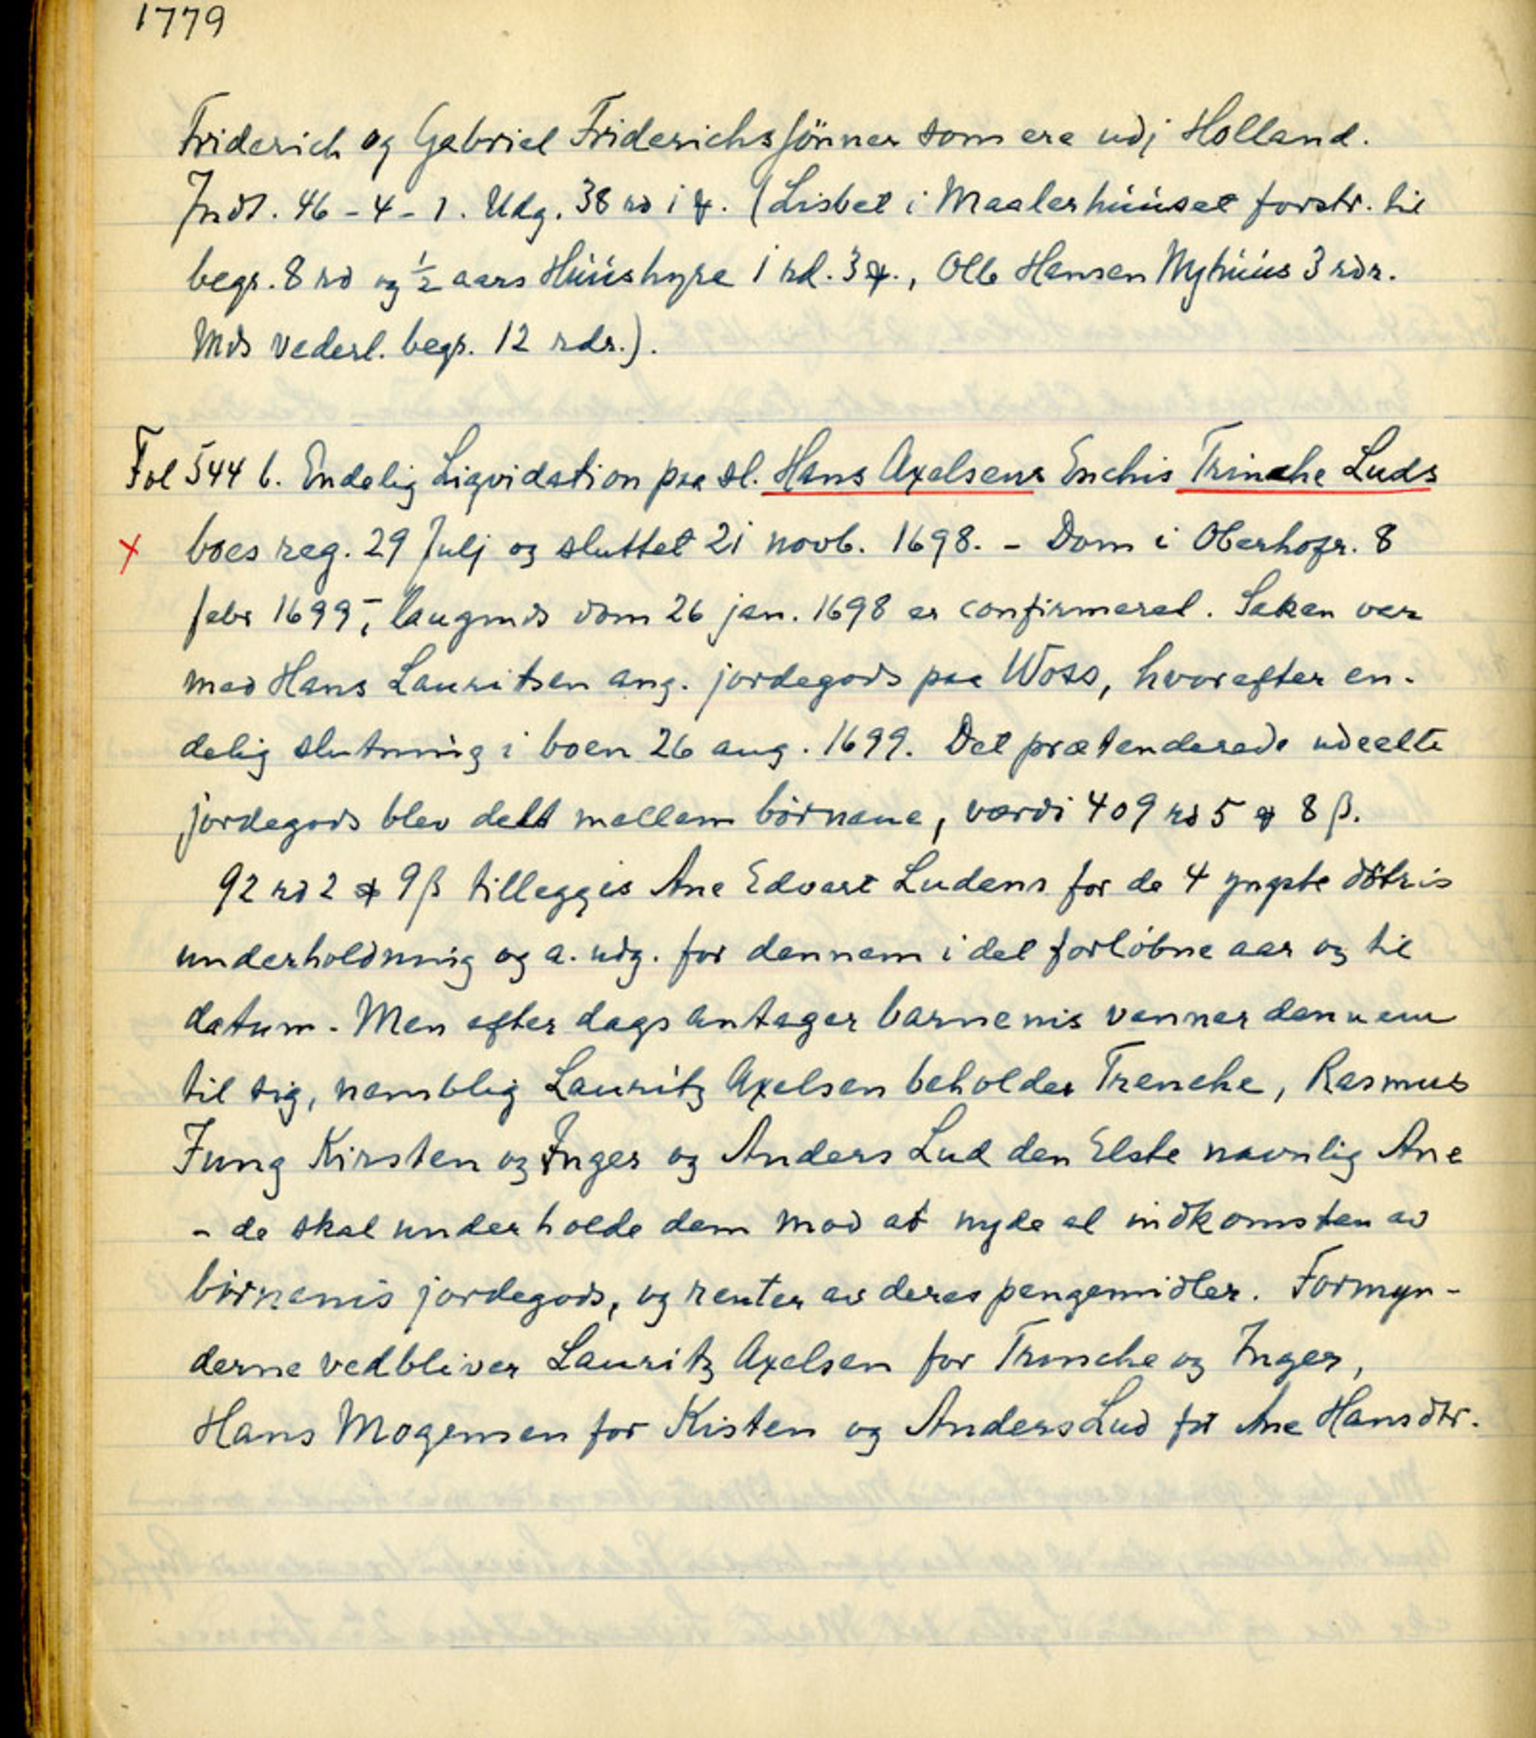 1779
Friderich og Gabriel Friderichssønner som ere udj Holland.
Indt. 46 - 4 - 1. Udg. 38 rd 1 ꝟ. (Lisbet i Maalerhúúset forstr. til
begr. 8 rd og ½ aars Húúshyre 1 rd. 3 ꝟ., Olle Hansen Nyhúús 3 rdr.
Mds vederl. begr. 12 rdr.).
Fol 544 b. Endelig Liqvidation paa sl. Hans Axelsens Enchis Trinche Luds
x boes reg. 29 Julj og sluttet 21 novb. 1698. - Dom i Oberhofr. 8
febr 1699, - laugmds dom 26 jan. 1698 er confirmeret. Saken var
med Hans Lauritsen ang. jordegods paa Woss, hvorefter en-
delig slutning i boen 26 aug. 1699. Det prætenderede udeelte
jordegods blev delt mellem börnene, værdi 409 rd 5 ꝟ 8 β.
92 rd 2 ꝟ 9 β tilleggis Ane Edvart Ludens for de 4 yngste döttris
underholdning og a. udg. for dennem i det forløbne aar og til
datum. Men efter dags antager barnenis venner dennem
til sig, nemblig Lauritz Axelsen beholder Trenche, Rasmus
Jung Kirsten og Inger og Anders Lud den Elste navnlig Ane
- de skal underholde dem mod at nyde al indkomsten av
börnenis jordegods, og renter av deres pengemidler. Formyn-
derne vedbliver Lauritz Axelsen for Trinche og Inger,
Hans Mogensen for Kisten og Anders Lud for Ane Hansdtr.